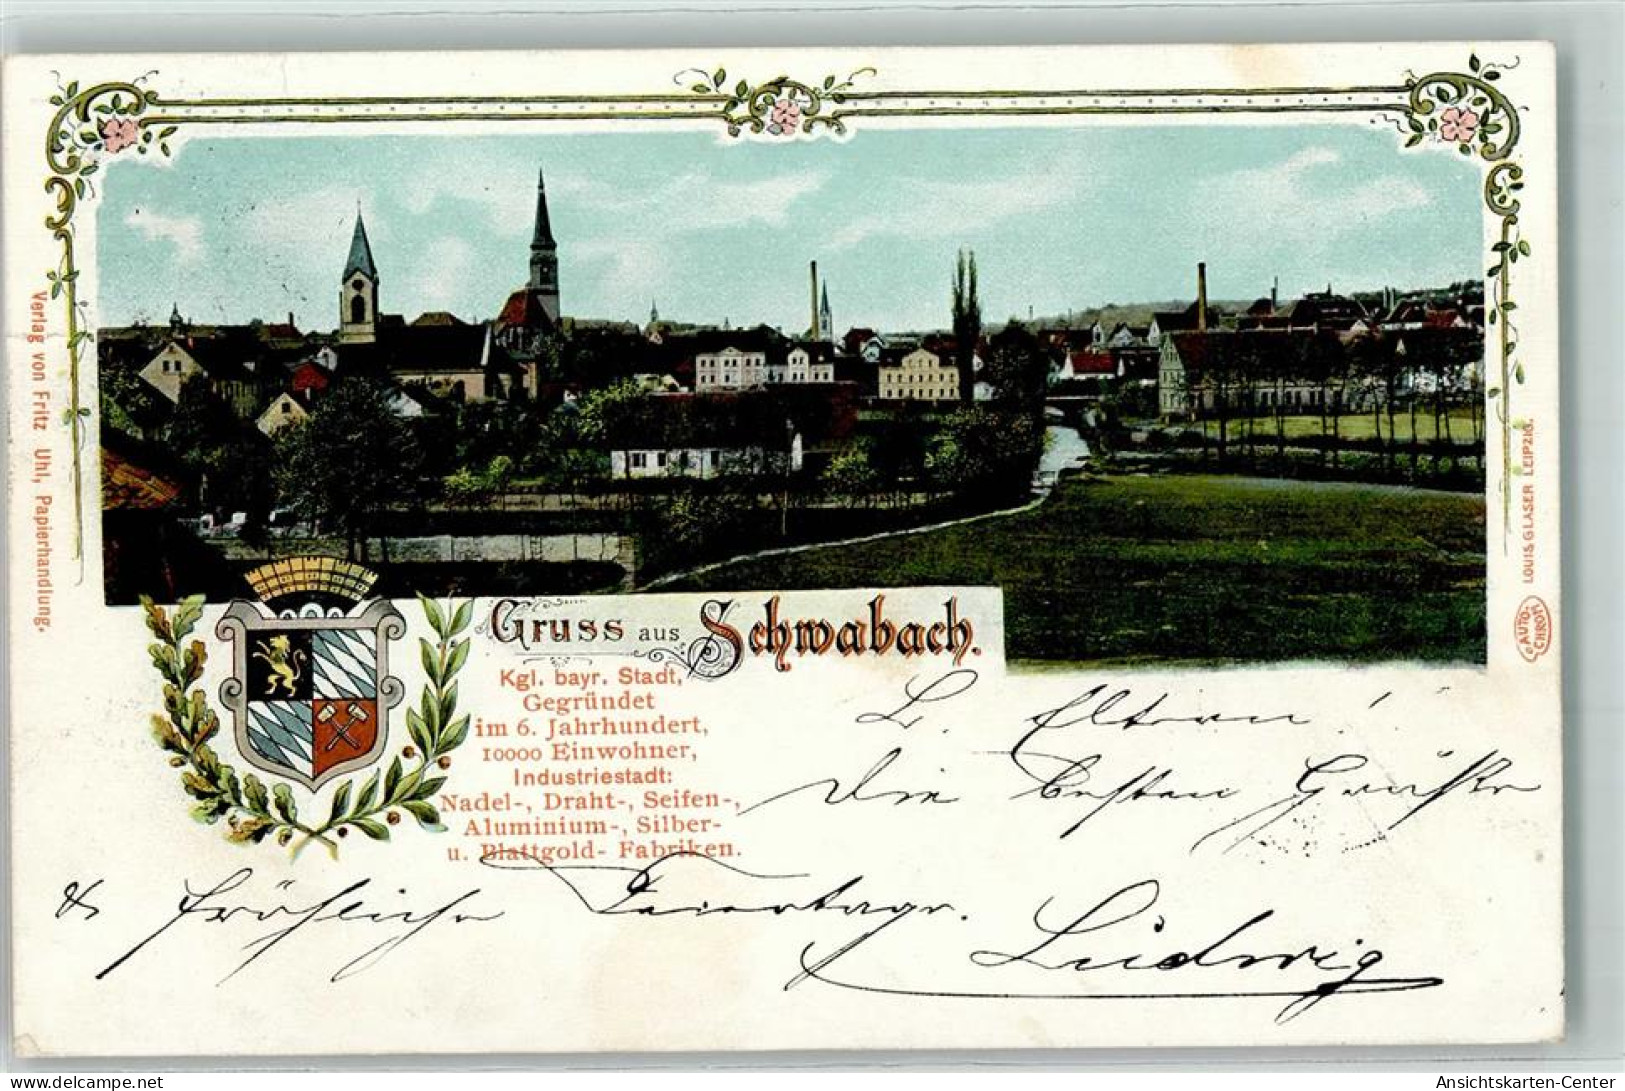 Gruss aus Schwabach.
Kgl. bayr. Stadt,
Gegründet
im 6. Jahrhundert,
10000 Einwohner,
Industriestadt:
Nadel-, Draht-, Seifen-,
Aluminium-, Silber-
u. Blattgold- Fabriken.
L. Eltern!
die besten Grüße
& fröhliche Feiertage.
Ludwig
Verlag von Fritz Uhl, Papierhandlung.
LOUIS GLASER LEIPZIG.
AUTO-
CHROM
oldthing.de
Ansichtskarten-Center